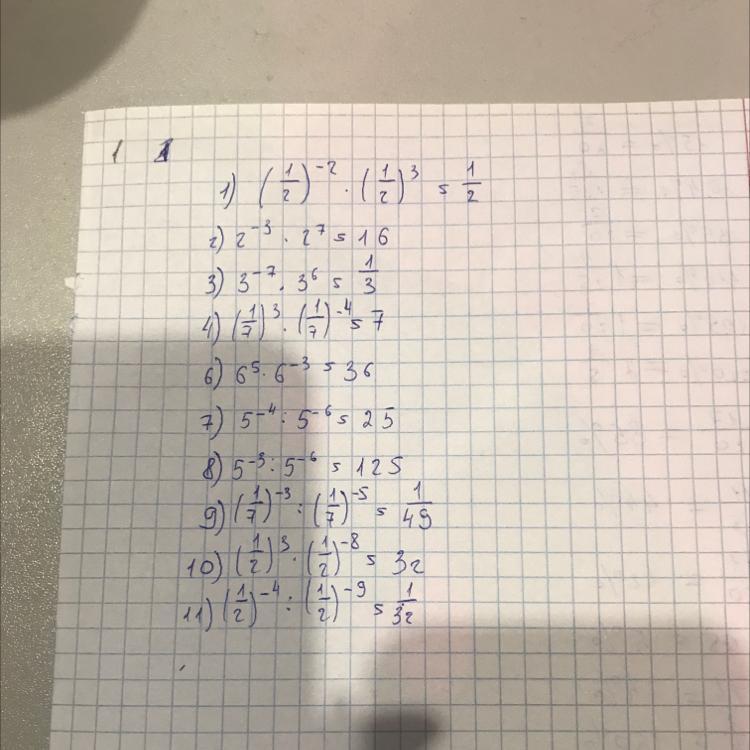 1 1
1) (1/2)^-2 · (1/2)^3 = 1/2
2) 2^-3 · 2^7 = 16
3) 3^-7 · 3^6 = 1/3
4) (1/7)^3 · (1/7)^-4 = 7
6) 6^5 · 6^-3 = 36
7) 5^-4 : 5^-6 = 25
8) 5^-3 : 5^-6 = 125
9) (1/7)^-3 : (1/7)^-5 = 1/49
10) (1/2)^3 · (1/2)^-8 = 32
11) (1/2)^-4 : (1/2)^-9 = 1/32